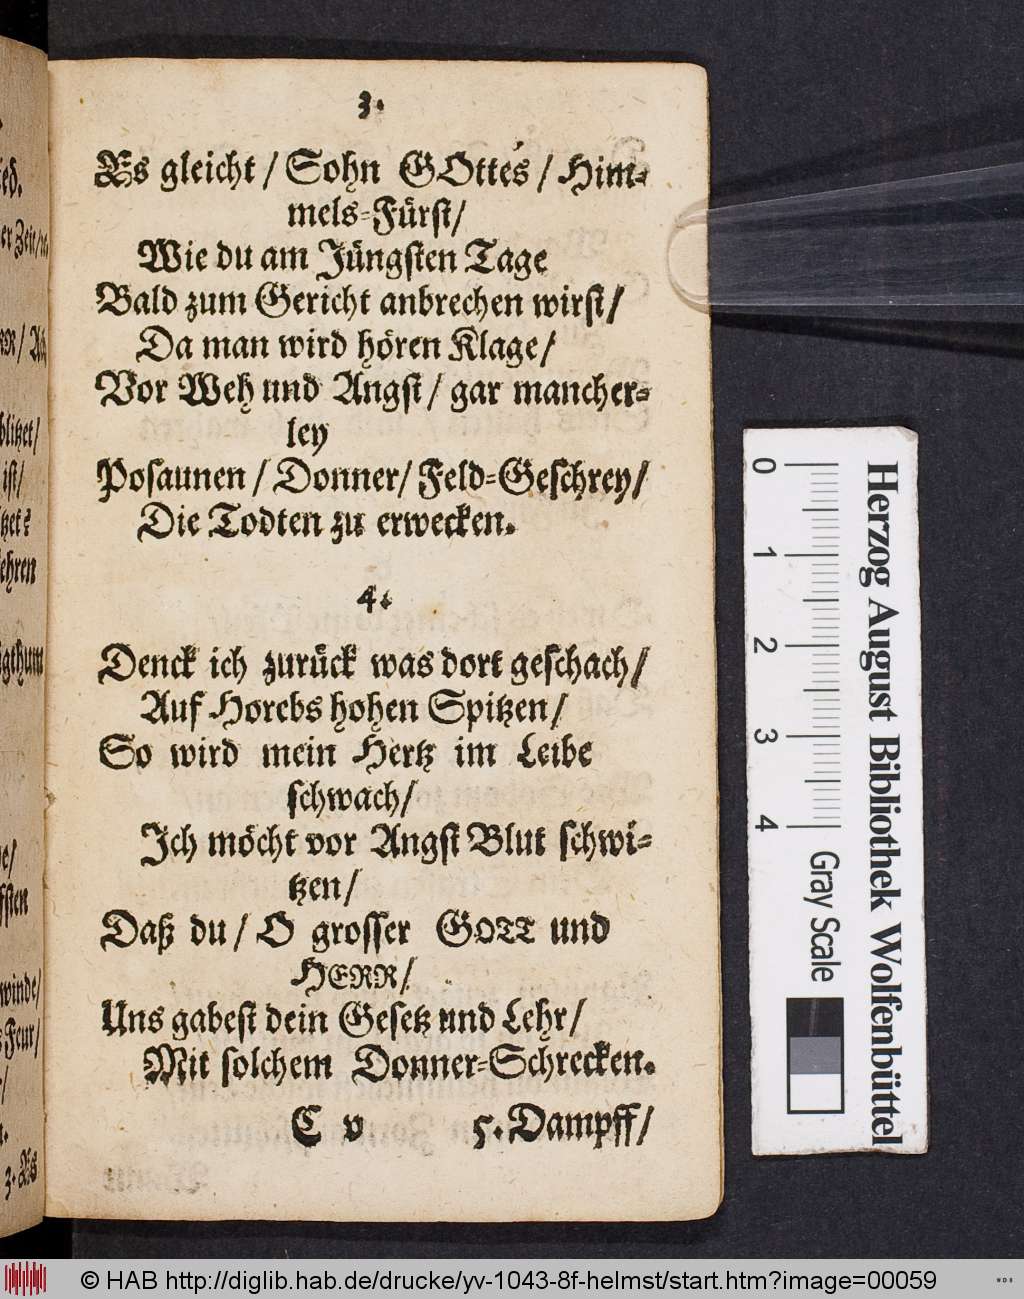 3.
Es gleicht / Sohn GOttes / Him-
mels-Fürst/
Wie du am Jüngsten Tage
Bald zum Gericht anbrechen wirst/
Da man wird hören Klage/
Vor Weh und Angst / gar mancher-
ley
Posaunen / Donner/ Feld-Geschrey/
Die Todten zu erwecken.
4.
Denck ich zurück was dort geschach/
Auf Horebs hohen Spitzen/
So wird mein Hertz im Leibe
schwach/
Ich möcht vor Angst Blut schwi-
tzen/
Daß du / O grosser GOTT und
HERR/
Uns gabest dein Gesetz und Lehr/
Mit solchem Donner-Schrecken.
C v 5. Dampff/
ed.
er Zeit/
blitzet/
ist/
tzet?
ehren
gthum
winde/
Feur/
3. Es
0 1 2 3 4
Gray Scale
Herzog August Bibliothek Wolfenbüttel
© HAB http://diglib.hab.de/drucke/yv-1043-8f-helmst/start.htm?image=00059